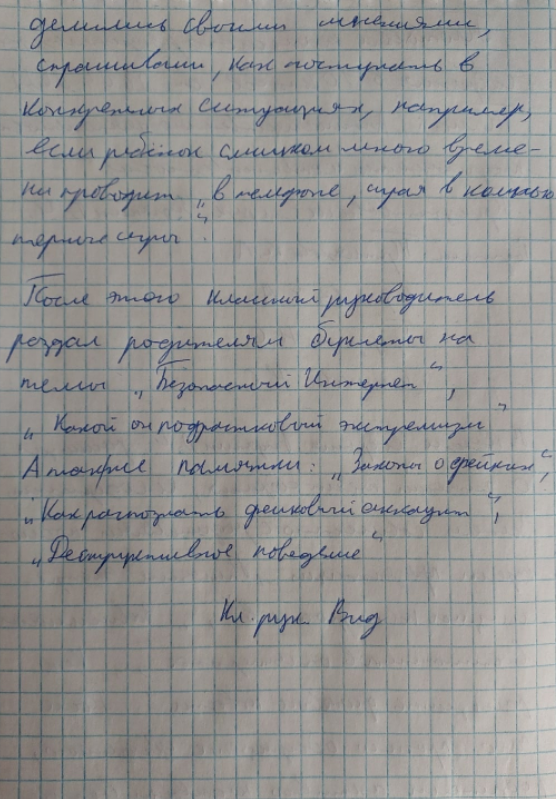 делились своими мнениями,
спрашивали, как поступать в
конкретных ситуациях, например,
если ребёнок слишком много време-
ни проводит „в телефоне, играя в компью
терные игры“.
После этого классный руководитель
раздал родителям буклеты на
темы „Безопасный Интернет“,
„Какой он подростковый экстремизм“
А также памятки: „Законы о фейках“,
„Как распознать фейковый аккаунт“,
„Деструктивное поведение“
Кл. рук.